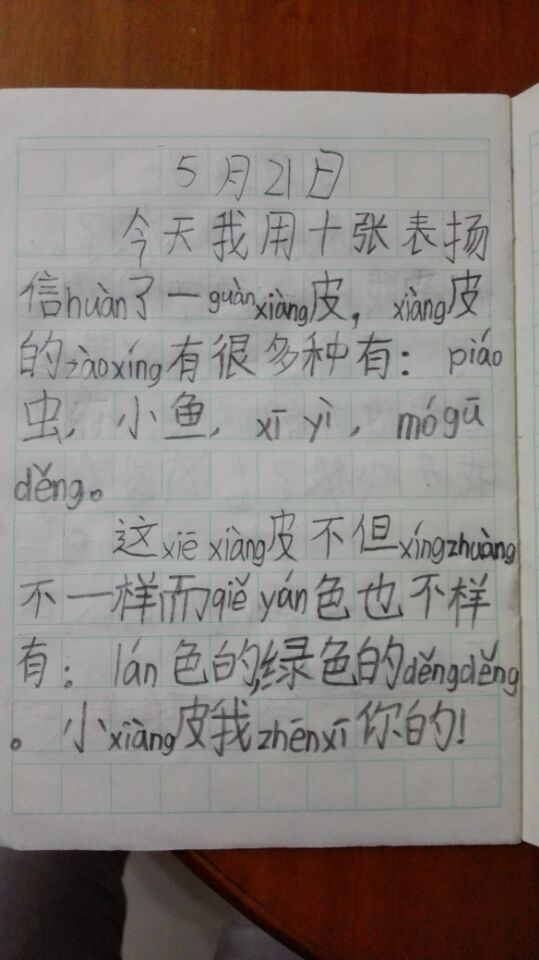 5月21日
今天我用十张表扬
信huàn了一guànxiàng皮，xiàng皮
的zàoxíng有很多种有：piáo
虫，小鱼，xī yì，mógū
děng。
这xiē xiàng皮不但xíngzhuàng
不一样而qiě yán色也不样
有：lán色的,绿色的děngděng
。小xiàng皮我zhēnxī你的！